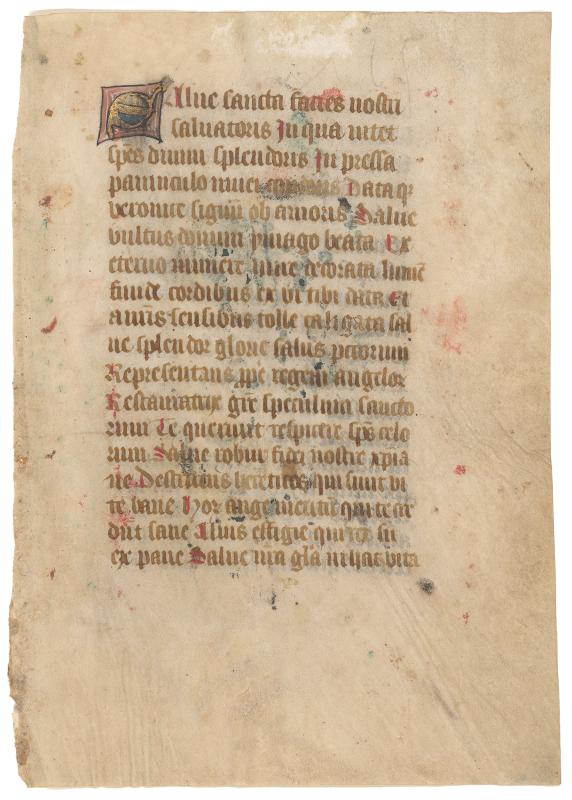 Salue sancta facies nostri
saluatoris In qua nitet
spēs diuini splendoris In pressa
panniculo niuei Data qꝫ
veronice signū ob amoris Salue
vultus ymago beata Ex
eterno decorata lumē
funde cordibus ex vi tibi data Et
a nr̄is sensibus tolle caligata sal
ue splendor glorie salus pctorum
Representans regem angeloꝝ
Restauratrix gr̄e speculū sancto
rum Te querunt respicere spūs celo
rum Salue robur fidei nostre xpia
ne Destruens hereticos qui sunt vi
te vane
dūt sane Illius effigie qui rex fit
ex pane Salue nr̄a gl̄a in hac vita